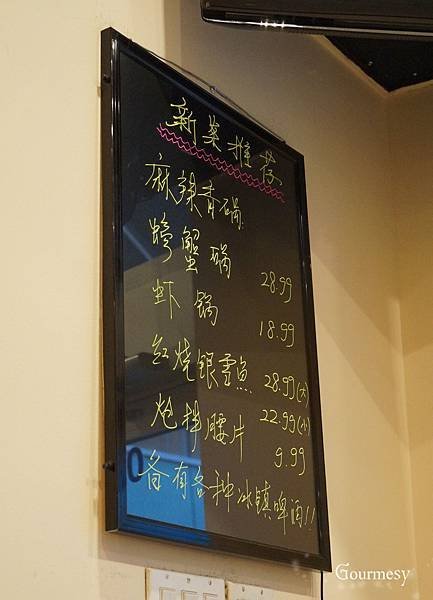 新菜推荐
麻辣香锅
螃蟹锅 28.99
虾锅 18.99
红烧银雪魚 28.99(大)
22.99(小)
炝拌腰片 9.99
备有各种冰镇啤酒!!
Gourmesy